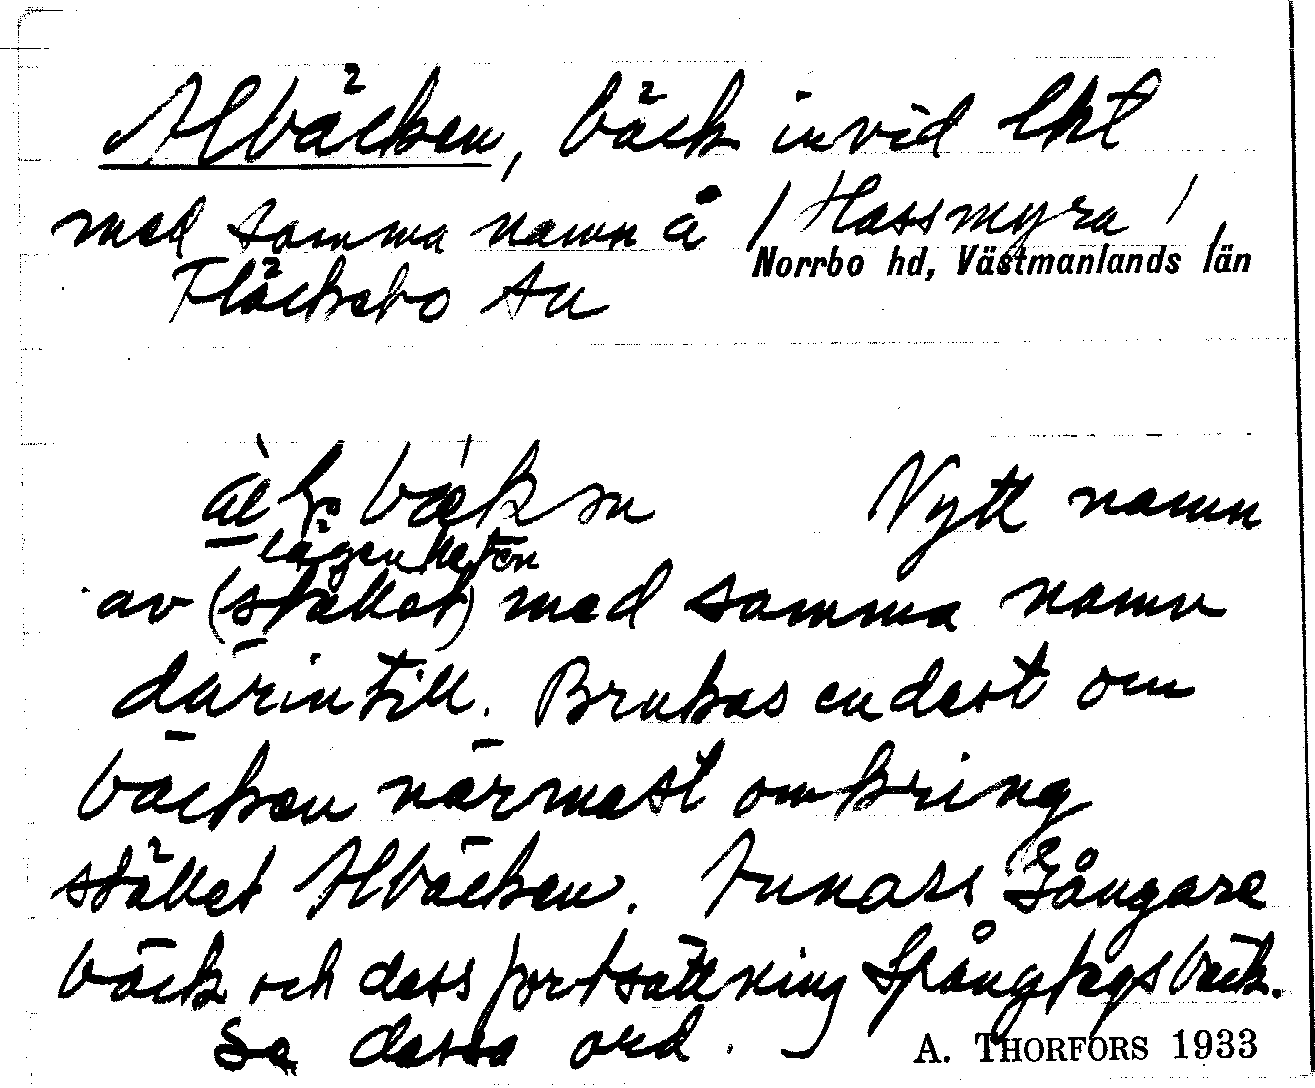 Albäcken, bäck invid lht
med samma namn å / Hassmyra /,
Norrbo hd, Västmanlands län
Fläckebo sn
bæksn Nytt namn
lägenheten
av (stället) med samma namn
därintill. Brukas endast om
bäcken närmast omkring
stället Albäcken. Annars Gångare
bäck och dess fortsättning Spångtegsbäck.
Se dessa ord.
A. THORFORS 1933